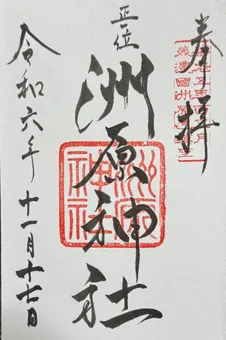 奉拝
正一位
洲原神社
令和六年 十一月十七日
洲原
神社